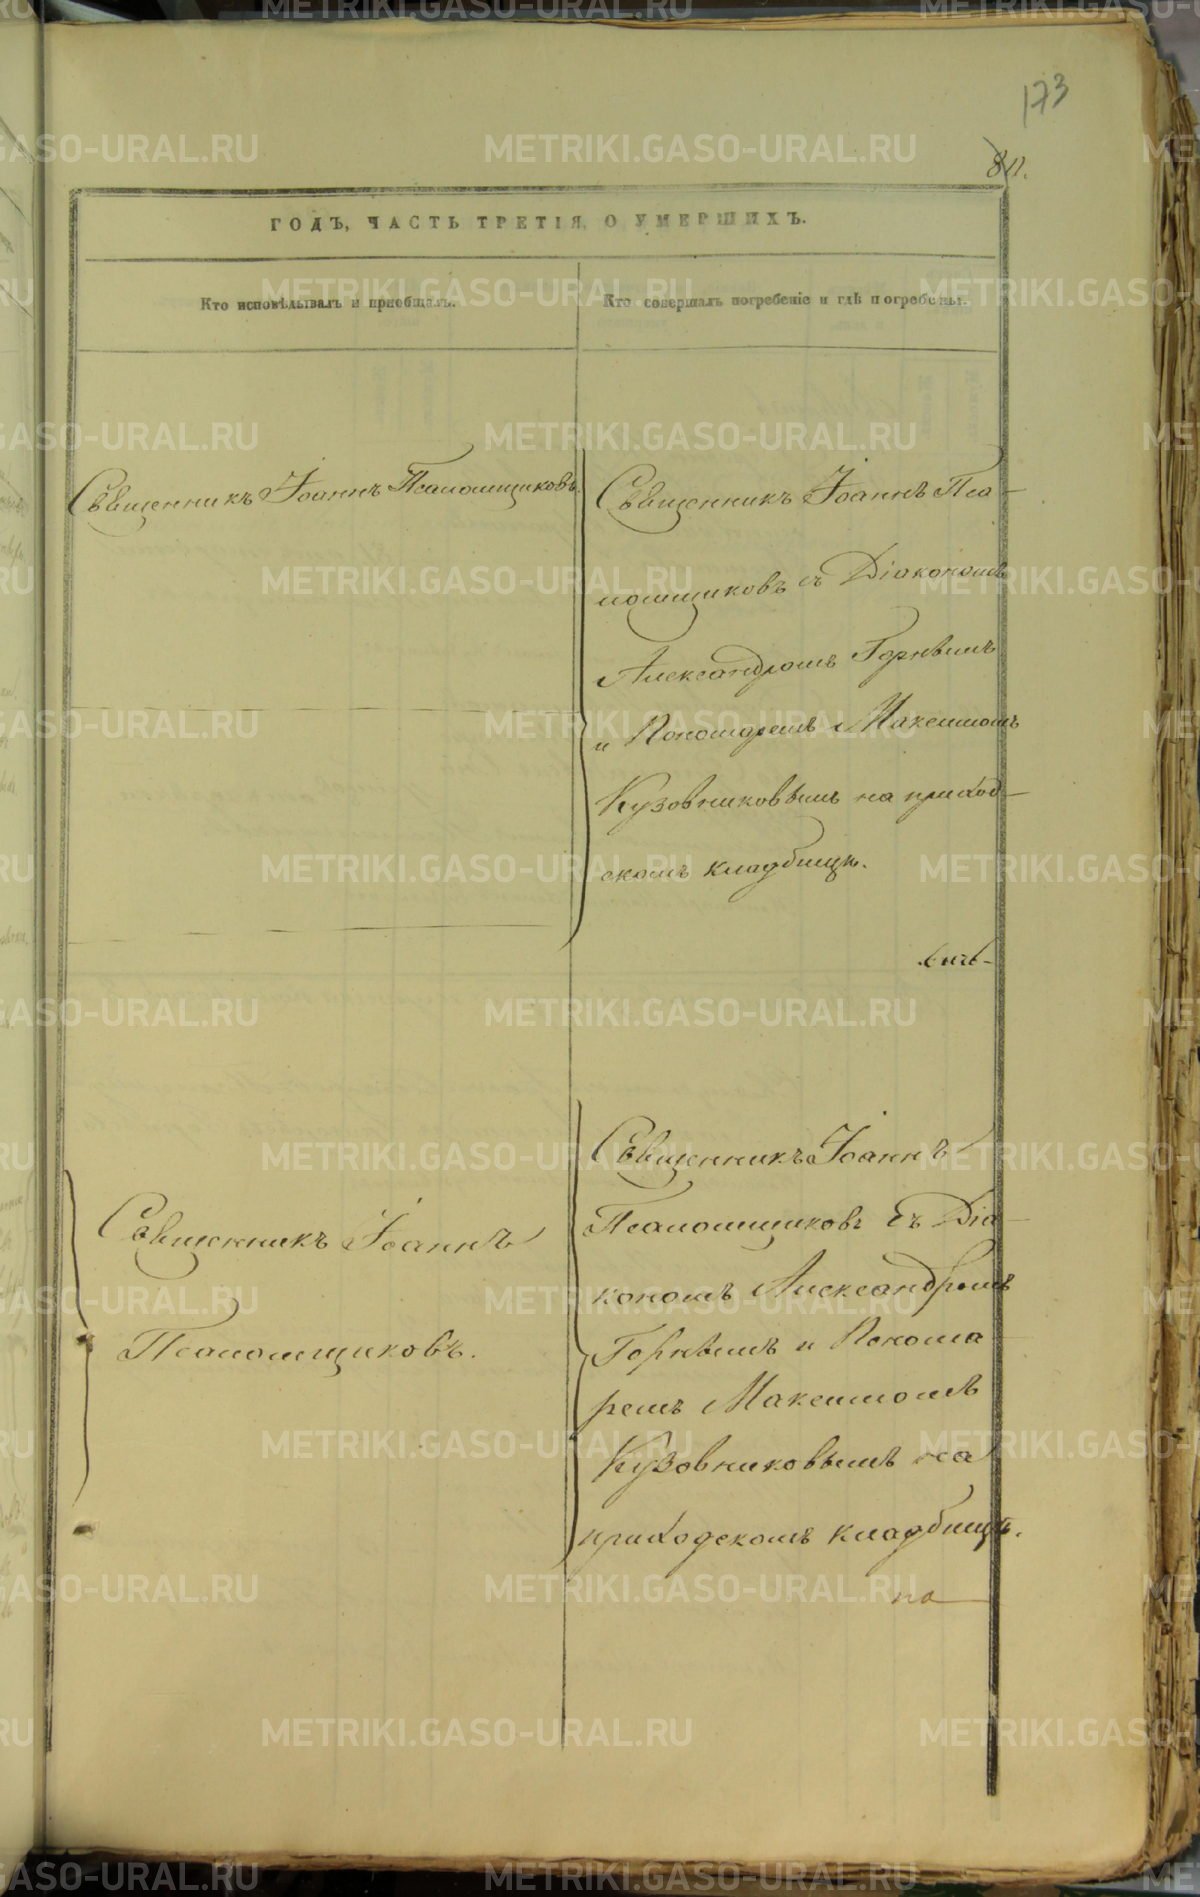 173
811.
ГОДЪ, ЧАСТЬ ТРЕТІЯ, О УМЕРШИХЪ.
Кто исповѣдывалъ и пріобщалъ.
Кто совершалъ погребеніе и гдѣ погребены.
Священникъ Іоаннъ Псаломщиковъ.
Священникъ Іоаннъ Пса-
ломщиковъ съ Діакономъ
Александромъ Горнымъ
и Пономаремъ Максимомъ
Кузовниковымъ на приход-
скомъ кладбищѣ.
Священникъ Іоаннъ
Псаломщиковъ.
Священникъ Іоаннъ
Псаломщиковъ съ Діа-
кономъ Александромъ
Горнымъ и Понома
ремъ Максимомъ
Кузовниковымъ на
приходскомъ кладбищѣ.
по
METRIKI.GASO-URAL.RU